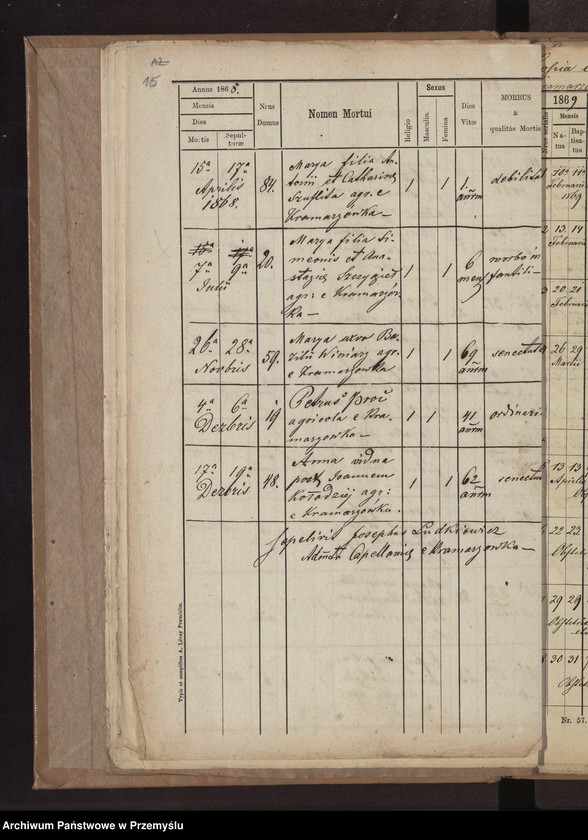 15
Annus 1868.
Mensis
Dies
Mortis
Sepulturæ
Nrus
Domus
Nomen Mortui
Religio
Sexus
Masculin.
Femina
Dies
Vitæ
MORBUS
a
qualitas Mortis
15ª 17ª
Aprilis
1868.
84.
Marya filia An-
tonii et Catharinæ
Szuflita agr. e
Kramarzówka —
1
1
1.
annm
debilitat
15ª 17ª
7ª 9ª
Julii
20.
Marya filia Si-
meonis et Ana-
stazie Szczygieł
agr: e Kramarzów-
ka —
1
1
6
men
morbo in
fantili —
26ª 28ª
Novbris
59.
Marya uxor Ba-
zilii Winiarz agr.
e Kramarzowka
1
1
69
annm
senectute
4ª 6ª
Dezbris
19
Petrus Proć
agricola e Kra-
marzowka —
1
1
41
annm
ordinari
17ª 19ª
Dezbris
48.
Anna vidua
post Joannem
Kołodziej agr:
e Kramarzówka.
1
1
62
annm
senectut
Sepelivit Josephus Ludkiewicz
Admtr Capellaniæ e Kramarzowka —
Typis et sumptibus A. Lévay Premisliæ.
1869
Mensis
Na-
tus
Bap-
tisa-
tus
10ª 11ª
Februarii
1869
13. 14
Februarii
20 21
Februar
26 29
Martii
13 13
Aprilis
22 23.
29 29
30 31
Nr. 57.
Archiwum Państwowe w Przemyślu